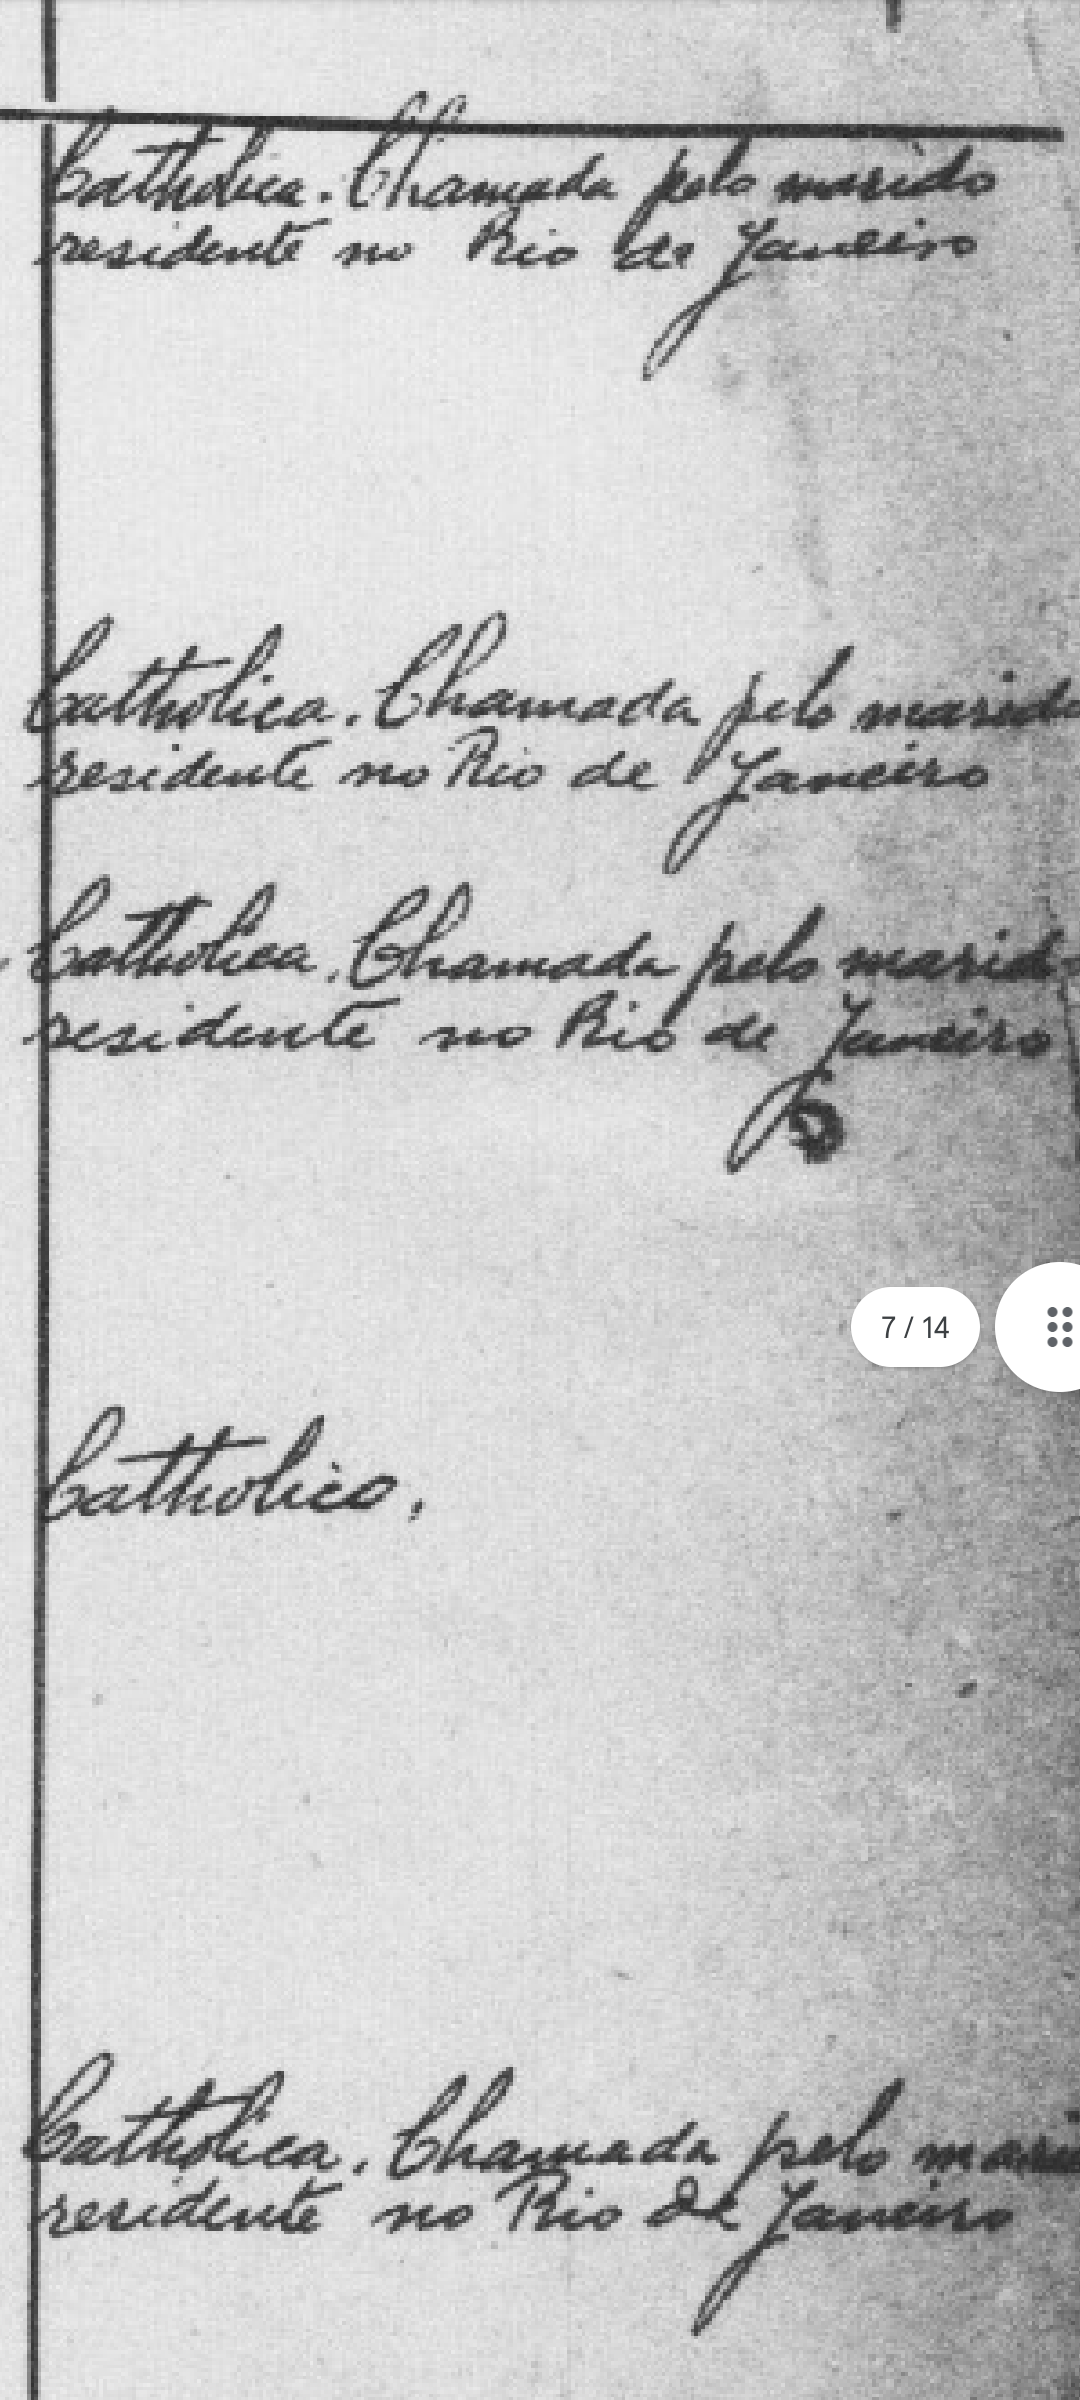 Catholica. Chamada pelo marido
residente no Rio de Janeiro
Catholica. Chamada pelo marido
residente no Rio de Janeiro
Catholica. Chamada pelo marid
residente no Rio de Janeiro
7 / 14
Catholico.
Catholica. Chamada pelo mari
residente no Rio de Janeiro